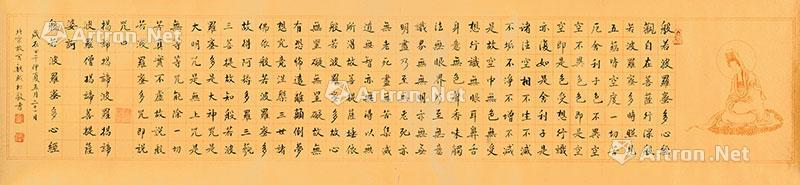 般若波羅蜜多心經
觀自在菩薩行深般
若波羅蜜多時照見
五蘊皆空度一切苦
厄舍利子色不異空
空不異色色即是空
空即是色受想行識
亦復如是舍利子是
諸法空相不生不滅
不垢不淨不增不減
是故空中無色無受
想行識無眼耳鼻舌
身意無色聲香味觸
法無眼界乃至無意
識界無無明亦無無
明盡乃至無老死亦
無老死盡無苦集滅
道無智亦無得以無
所得故菩提薩埵依
般若波羅蜜多故心
無罣礙無罣礙故無
有恐怖遠離顛倒夢
想究竟涅槃三世諸
佛依般若波羅蜜多
故得阿耨多羅三藐
三菩提故知般若波
羅蜜多是大神咒是
大明咒是無上咒是
無等等咒能除一切
苦真實不虛故說般
若波羅蜜多咒即說
咒曰
揭諦揭諦波羅揭諦
波羅僧揭諦菩提薩
婆訶
般若波羅蜜多心經
歲在壬午仲夏五月二十一日
北京故宮敬書
Artron.Net
Artron.Net
Artron.Net
Artron.Net